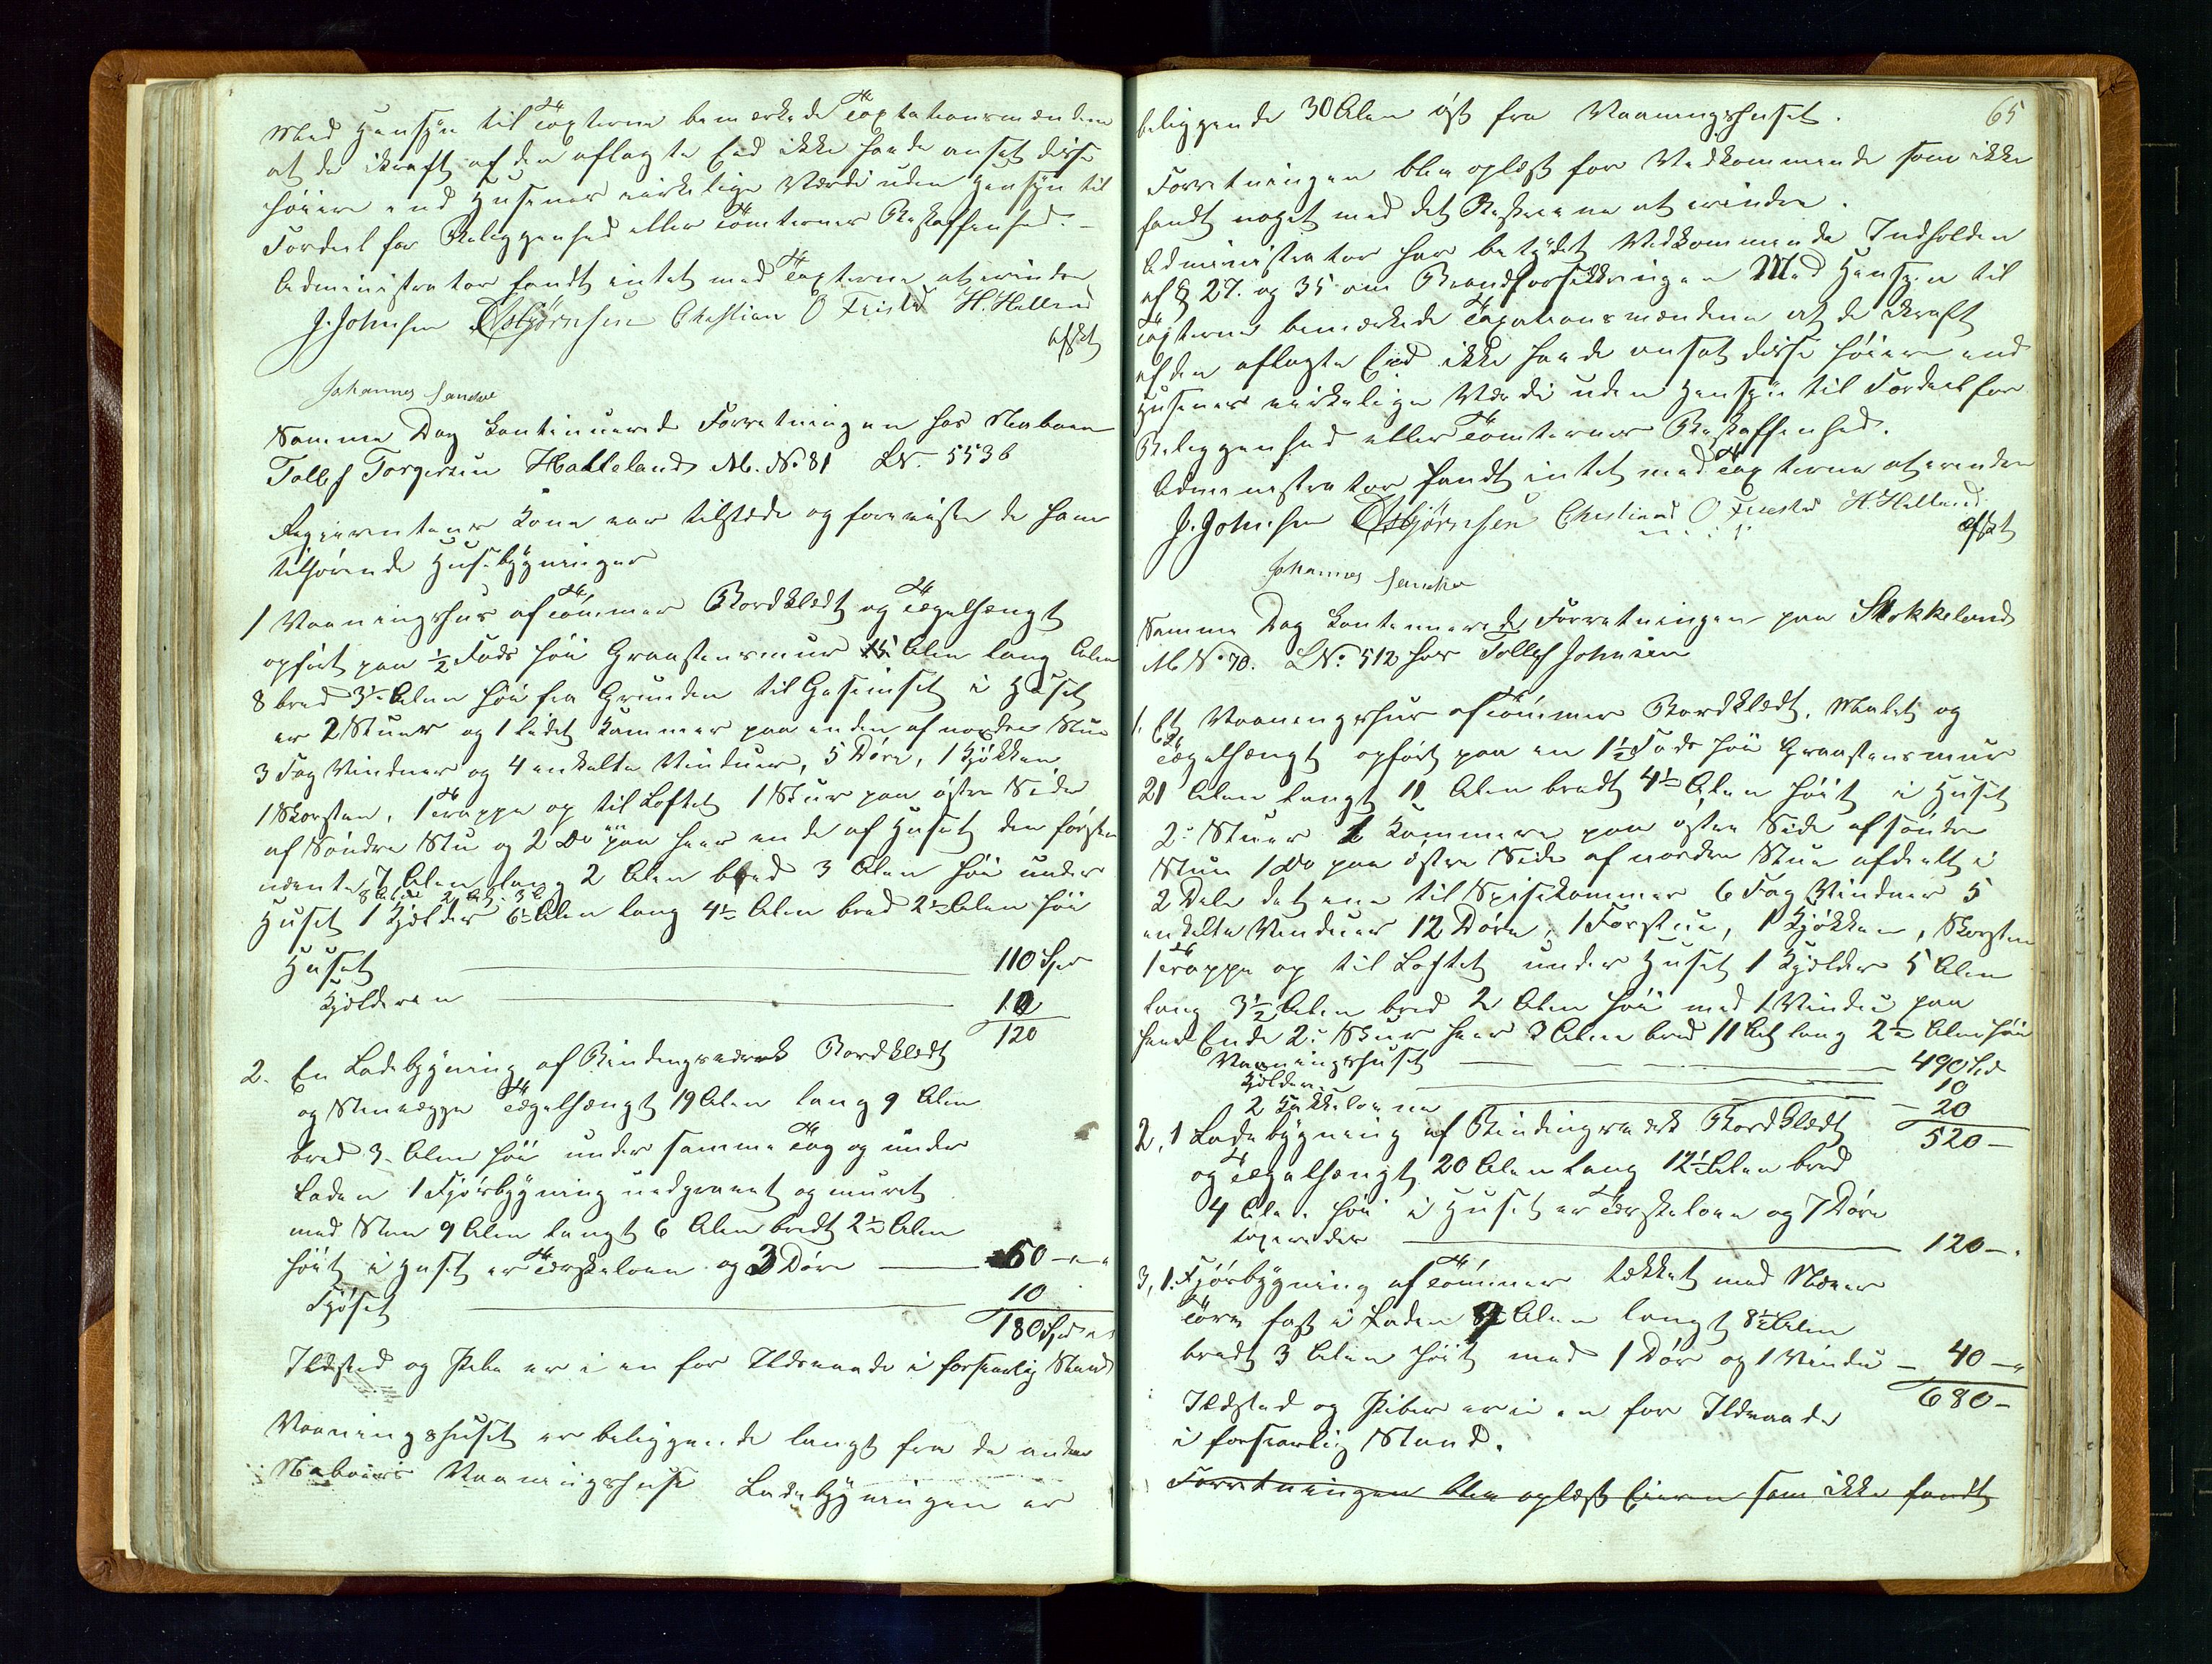 Med Hensyn til Taxterne bemærkede Taxtationsmændene
at de ikraft af den aflagte Eed ikke havde ansat disse
høiere end Husenes virkelige Værdi uden Hensyn til
Fordeel for Beliggenhed eller Tomternes Beskaffenhed. –
Administrator fandt intet med Taxterne at erindre
J. Johnsen O Asbjørnsen Christian O Friestad H. Helland
Johannes Sandve
Samme Dag kontinuerede Forretningen hos Naboen
Tollef Torgersen Halleland M. No 81 LN. 5536
Reqvirentens Kone var tilstede og foreviste de ham
tilhørende Husebygninger
1 Vaaningshus af Tømmer Bordklædt og Tægelhængt
opført paa ½ Fods høi Graasteensmuur 15 Alen lang Alen
8 bred 3½ Alen høi fra Grunden til Gesimset i Huset
er 2 Stuer og 1 lidet Kammer paa enden af nordre Stue
3 Fag Vinduer og 4 enkelte Vinduer, 5 Døre, 1 Kjøkken
1 Skorsten, 1 Trappe op til Loftet 1 Skur paa østre Side
af Søndre Stu og 2 Do paa hver ende af Huset den første
7 Alen lang 2 Alen bred 3 Alen høi under
Huset 1 Kjelder 6½ Alen lang 4½ Alen bred 2½ Alen høi
Huset 110 Spd
Kjelderen 10
120
2. En Ladebygning af Bindingsværk Bordklædt
og Steenvægge Tægelhængt 19 Alen lang 9 Alen
bred 3 Alen høi under samme Tag og under
Laden 1 Fjøsbygning nedgravet og muret
med Steen 9 Alen langt 6 Alen bredt 2½ Alen
høit i Huset er Tærskeloen og 3 Døre 50 – " – "
Fjøset 10
180 Spd
Ildsted og Pibe er i en for Ildsvaade i forsvarlig Stand
Vaaningshuset er beliggende langt fra de andre
Naboers Vaaningshuse Ladebygningen er
65
beliggende 30 Alen øst fra Vaaningshuset.
Forretningen blev oplæst for Vedkommende som ikke
fandt noget med det Beskrevne at erindre.
Administrator har betydet Vedkommende Indholden
af § 27. og 35 om Brandforsikringen Med Hensyn til
Taxterne bemærkede Taxationsmændene at de ikraft
af den aflagte Eed ikke havde ansat disse høiere end
Husenes virkelige Værdi uden Hensyn til Fordeel for
Beliggenhed eller Tomternes Beskaffenhed.
Administrator fandt intet med Taxterne at erindre
J. Johnsen O Asbjørnsen Christian O Friestad H. Helland
Johannes Sandve
Samme Dag kontinuerede Forretningen paa Stokkeland
M No 70. LNo 512 hos Tollef Johnsen
1. Et Vaaningshus af Tømmer Bordklædt, Malet og
Tægelhængt opført paa en 1½ Fods høi Graasteensmuur
21 Alen langt 11 Alen bredt 4½ Alen høit i Huset
2 Stuer 2 Kammere paa østre Side af søndre
Stue 1 Do paa østre Side af nordre Stue afdeelt i
2 Dele det ene til Spisekammer 6 Fag Vinduer 5
enkelte Vinduer 12 Døre, 1 Forstue, 1 Kjøkken, Skorsten
1 Trappe op til Loftet under Huset 1 Kjelder 5 Alen
lang 3½ Alen bred 2 Alen høi med 1 Vindu paa
hver Ende 2 Skur hver 3 Alen bred 11 Al lang 2½ Alen høi
Vaaningshuset 490 Spd
Kjelderen 10
2 Kakkelovne 20
520 –
2, 1 Ladebygning af Bindingsværk Bordklædt
og Tægelhængt 20 Alen lang 12½ Alen bred
4 Alen høi i Huset er Tærskeloen og 7 Døre
120 – "
3, 1. Fjøsbygning af Tømmer tækket med Næver
Torv fast i Laden 9 Alen langt 8½ Alen
bredt 3 Alen høit med 1 Dør og 1 Vindu – 40 – "
680 –
Ildsted og Piber er i en for Ildsvaade
i forsvarlig Stand.
Forretningen blev oplæst Eieren som ikke fandt